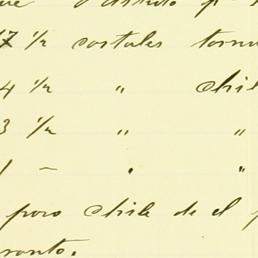 7 1/2 costales
4 1/2 " chil
3 1/2 " "
1 – " "
poro chile de el p
pronto.